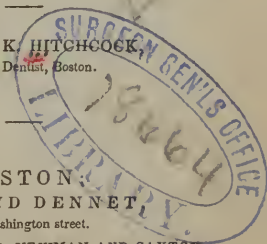 K. HITCHCOCK,
Dentist, Boston.
SURGEON GEN'LS OFFICE
LIBRARY.
STON:
YD DENNET,
shington street.